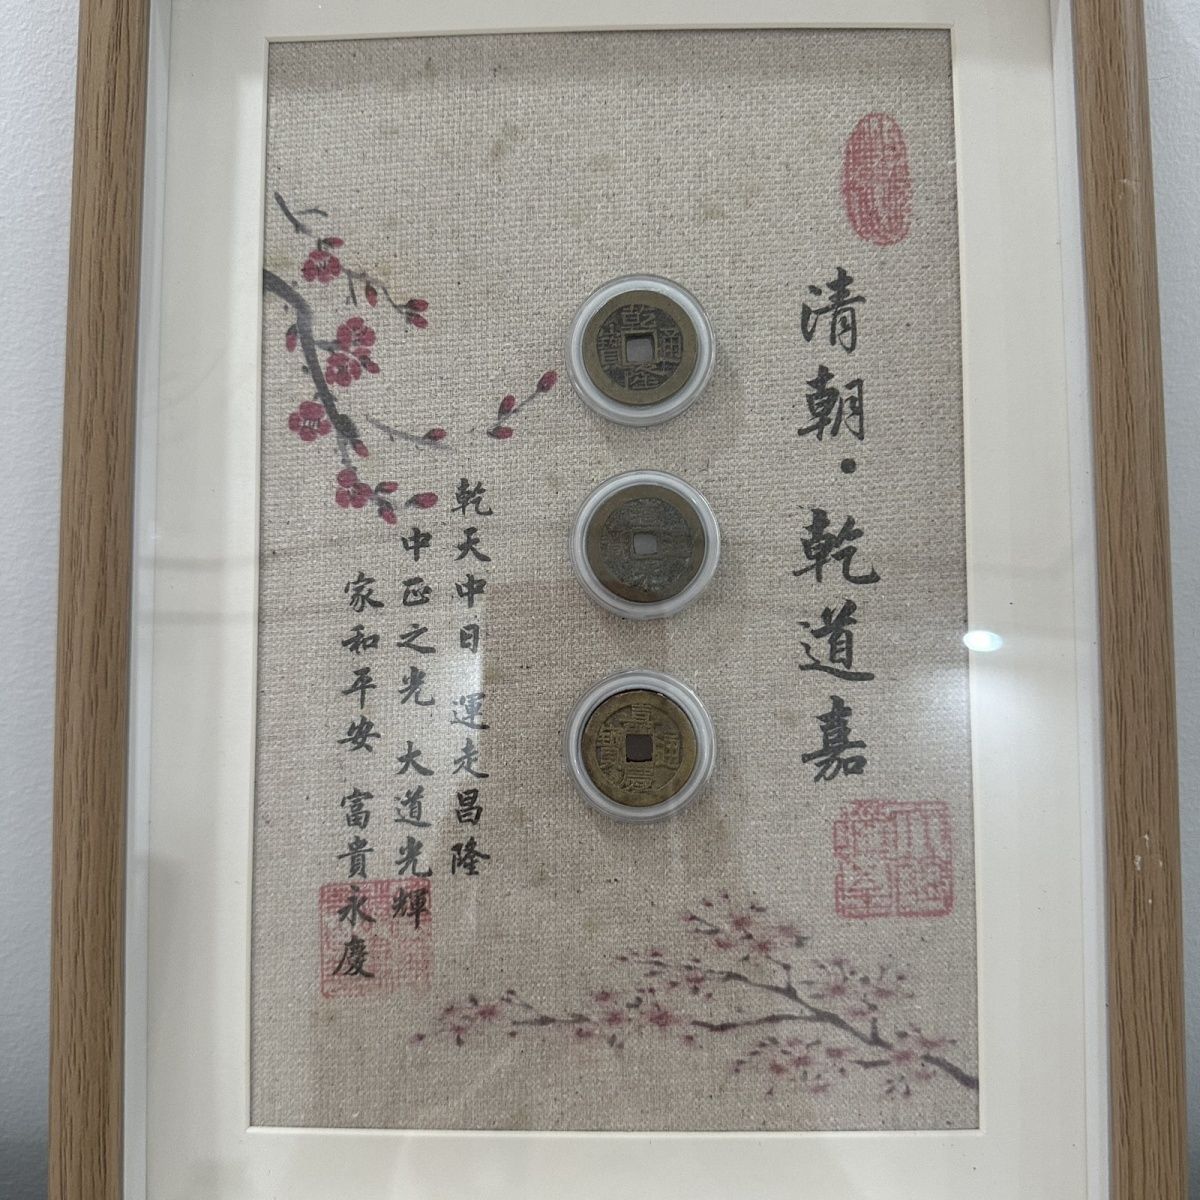 清朝·乾道嘉
乾隆通寶
嘉慶通寶
乾天中日 運走昌隆
中正之光 大道光輝
家和平安 富貴永慶